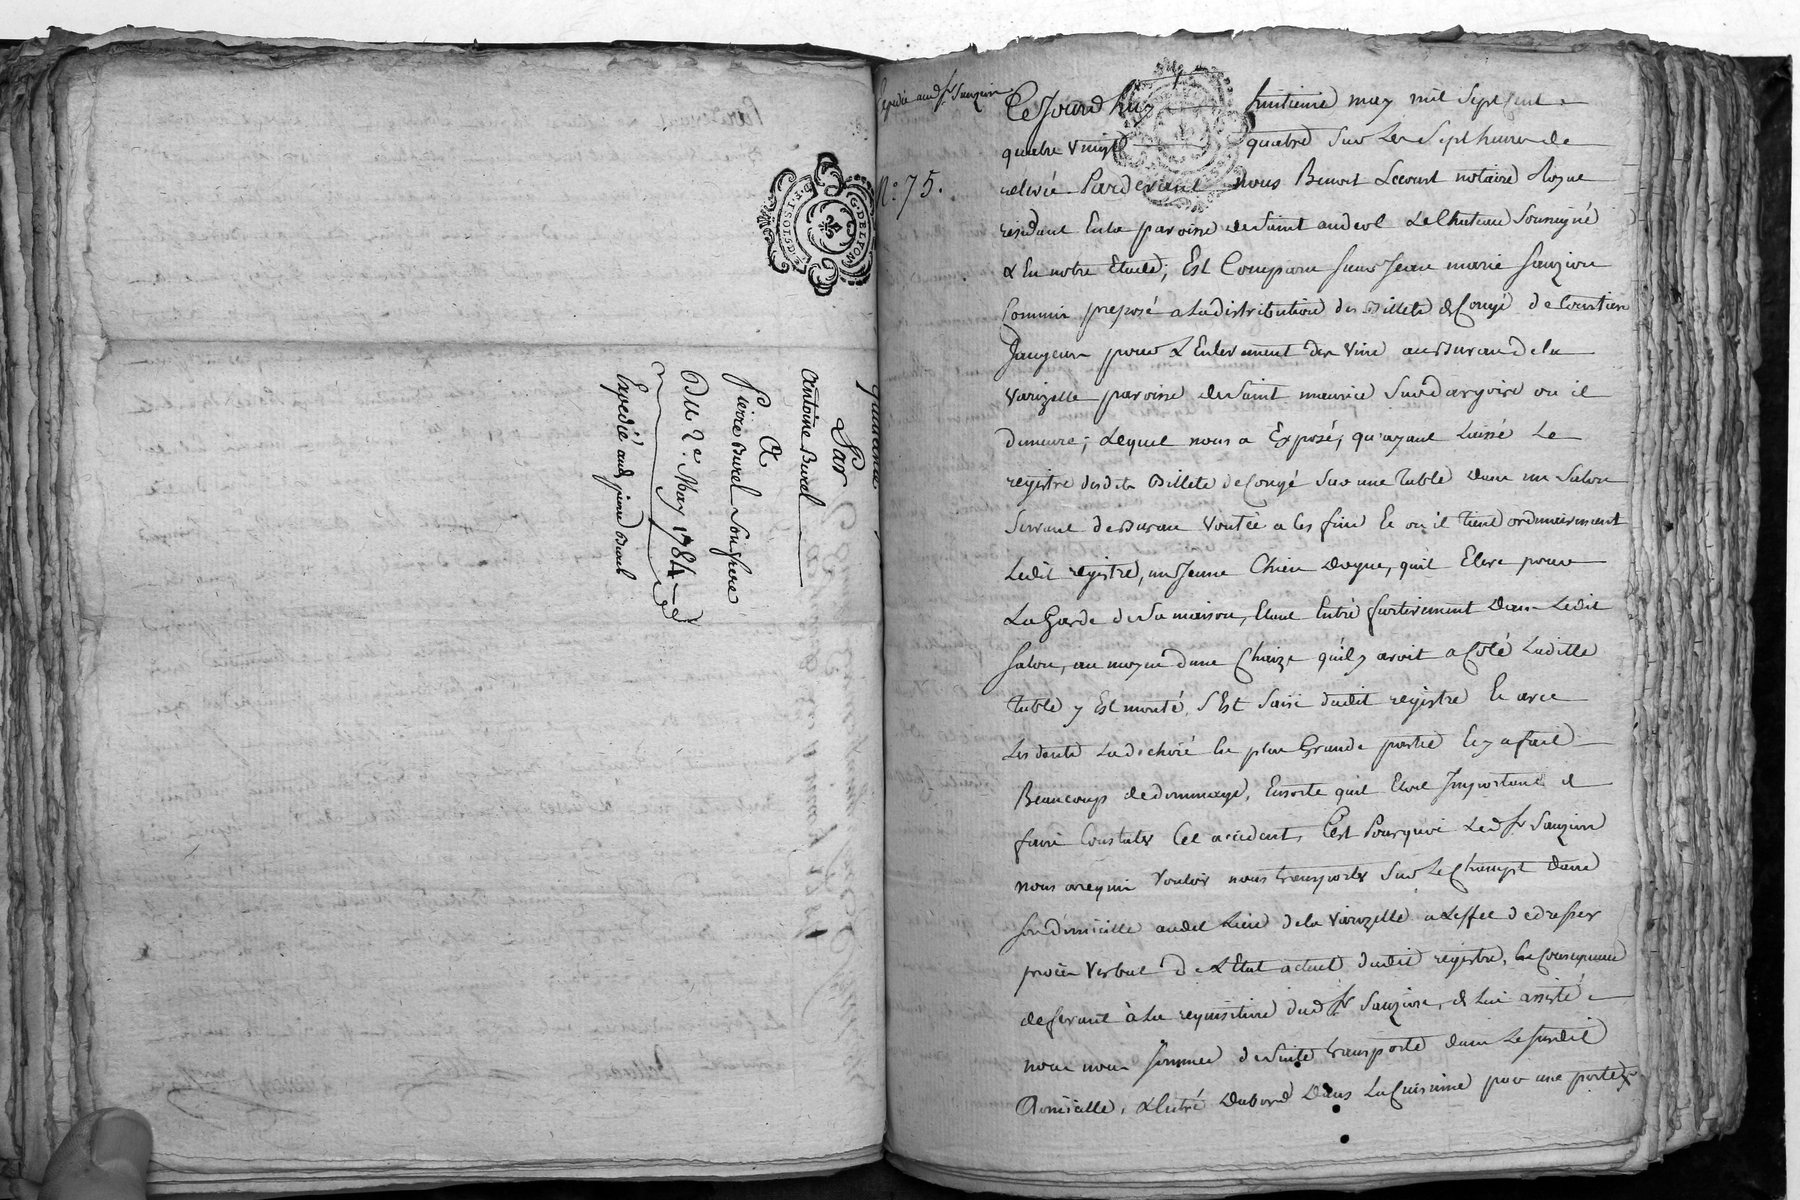 quittance
Par
Antoine Burel
A
Pierre Burel Son frere
Du 2e. May 1784
Expedié aud pierre Burel
G. DE LYON
2 SOLS
Expedié aud Sr Sauzion
N.o 75.
Ce Jourd'huy huitieme may mil Sept Cent
quatre Vingt quatre Sur Les Sept heures de
relevée Pardevant nous Benoit Lecourt notaire Royal
residant En la paroisse de Saint andeol Le Chateau Soussigné
& En notre Etude, Est Comparu Sieur Jean marie Sauzion
Commis preposé a La distribution des Billets de Congé de Courtier
Jaugeur pour L'Enlevement des Vins au Bureau de la
Varizelle paroisse de Saint maurice Sur dargoire ou il
demeure; Lequel nous a Exposé, qu'ayant Laissé Le
registre desdits Billets de Congé Sur une Table dans un Salon
Servant de Bureau Voutée a Ces fins Et ou il tient ordinairement
Ledit registre, un Jeune Chien dogue, quil Eleve pour
La Garde de Sa maison, Etant Entré furtivement dans Ledit
Salon, au moyen d'une Chaize qu'il y avoit a Coté Laditte
Table y Est monté, S'Est Saisi dudit registre Et avec
Les dents La dechiré En plus Grande partie Et y a fait
Beaucoup de dommage, Ensorte quil Etoit Important d
faire Constater Cet accident, C'est Pourquoi Led Sr Sauzion
nous a requis Vouloir nous transporter Sur Le Champt dans
Son domicille audit Lieu de la Varizelle a L'effet de dresser
procès Verbal de L'Etat actuel dudit registre, En Consequence
deferant à La requisition dud Sr Sauzion, & de Lui assisté
nous nous Sommes de Suite transporté dans Le Susdit
domicille, & Entré Dabord Dans La Cuisine par une porte